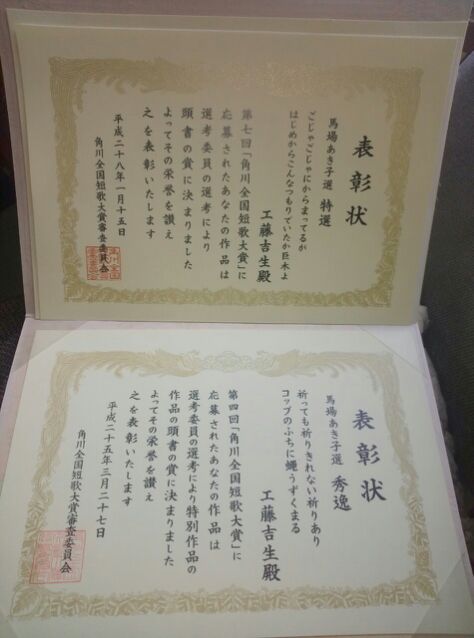 表彰状
馬場あき子選 特選
ごじゃごじゃにからまってるが
はじめからこんなつもりでいたか巨木よ
工藤吉生殿
第七回「角川全国短歌大賞」に
応募されたあなたの作品は
選考委員の選考により
頭書の賞に決まりました
よってその栄誉を讃え
之を表彰いたします
平成二十八年一月十五日
角川全国短歌大賞審査委員会
表彰状
馬場あき子選 秀逸
祈っても祈りきれない祈りあり
コップのふちに蠅うずくまる
工藤吉生殿
第四回「角川全国短歌大賞」に
応募されたあなたの作品は
選考委員の選考により特別作品の
作品の頭書の賞に決まりました
よってその栄誉を讃え
之を表彰いたします
平成二十五年三月二十七日
角川全国短歌大賞審査委員会